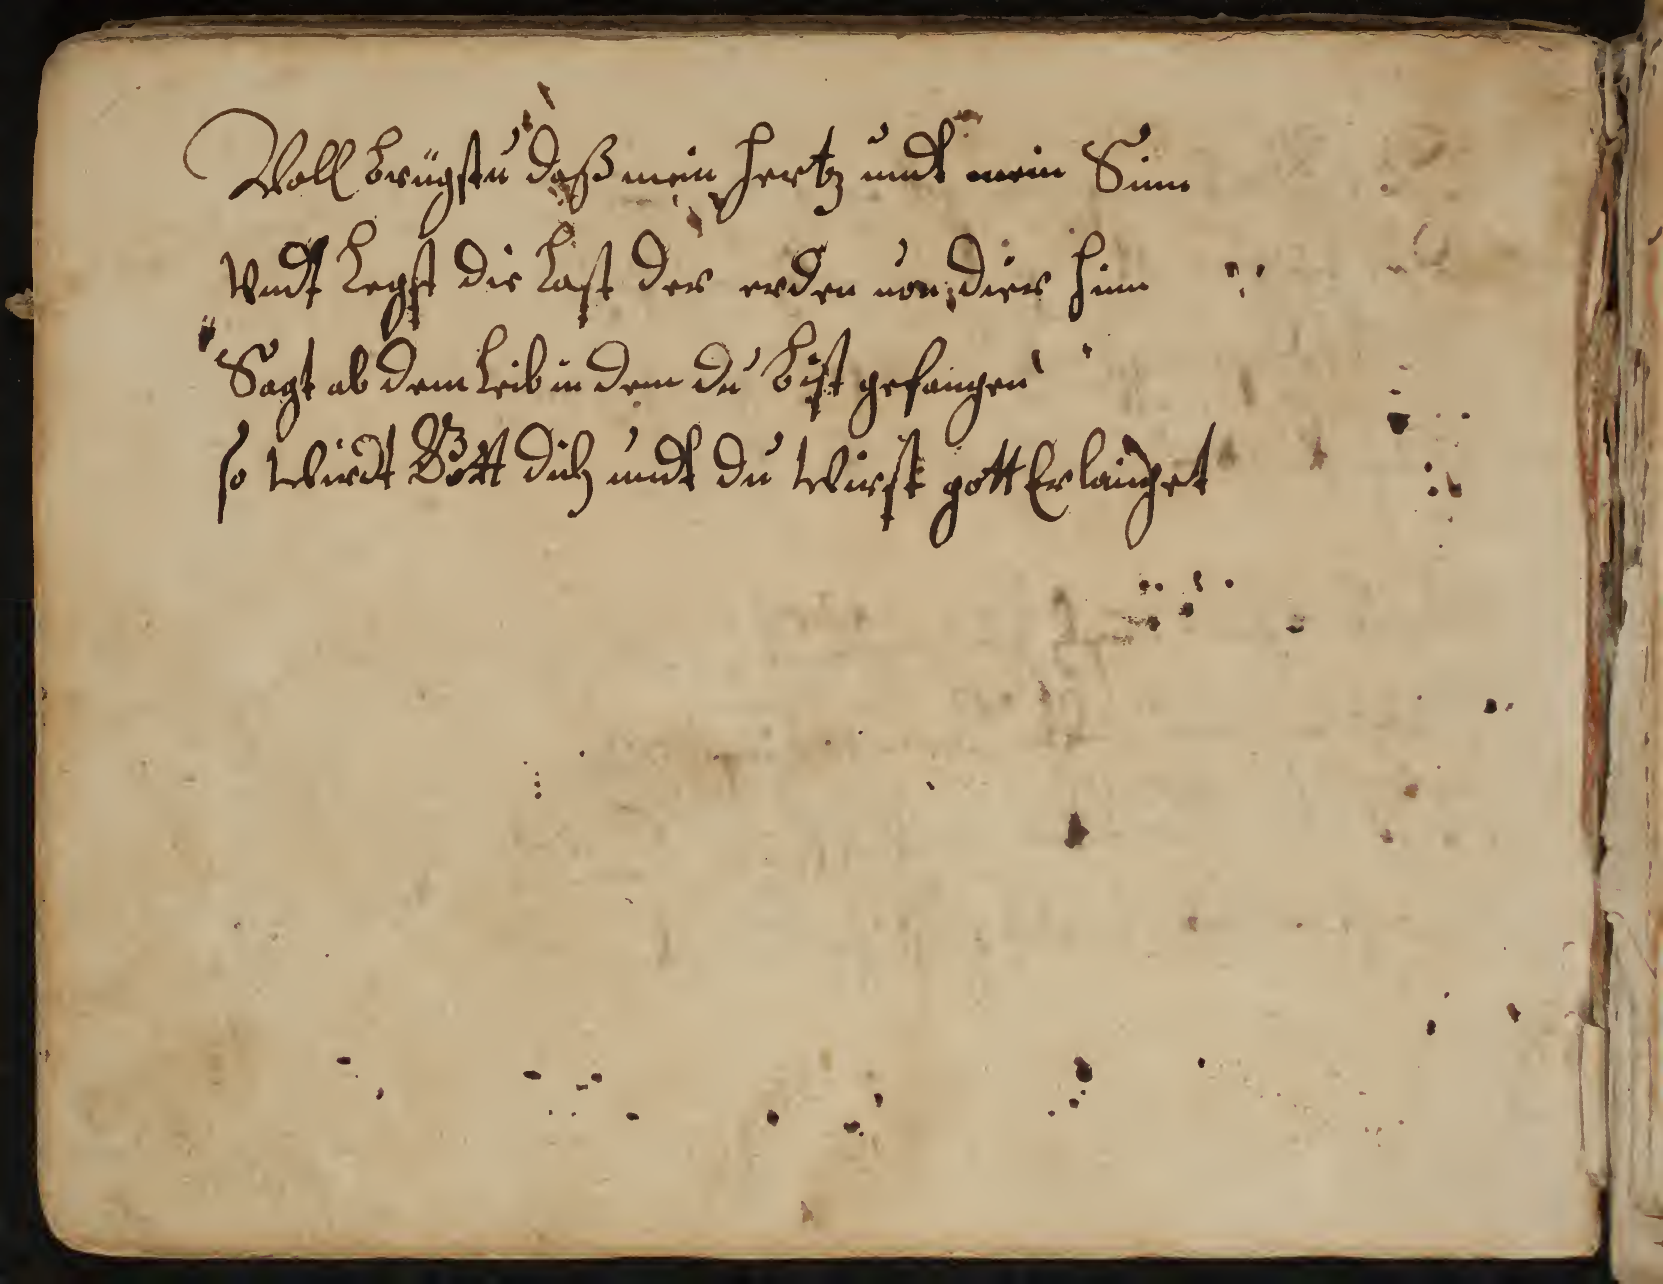 Woll brügstu daß mein hertz undt mein Sinn
Vndt Legst die Last der erden uon dier hinn
Sagt ab dem Leib in dem du bist gefangen
so wirdt Gott dich undt du wirst gott Erlanget